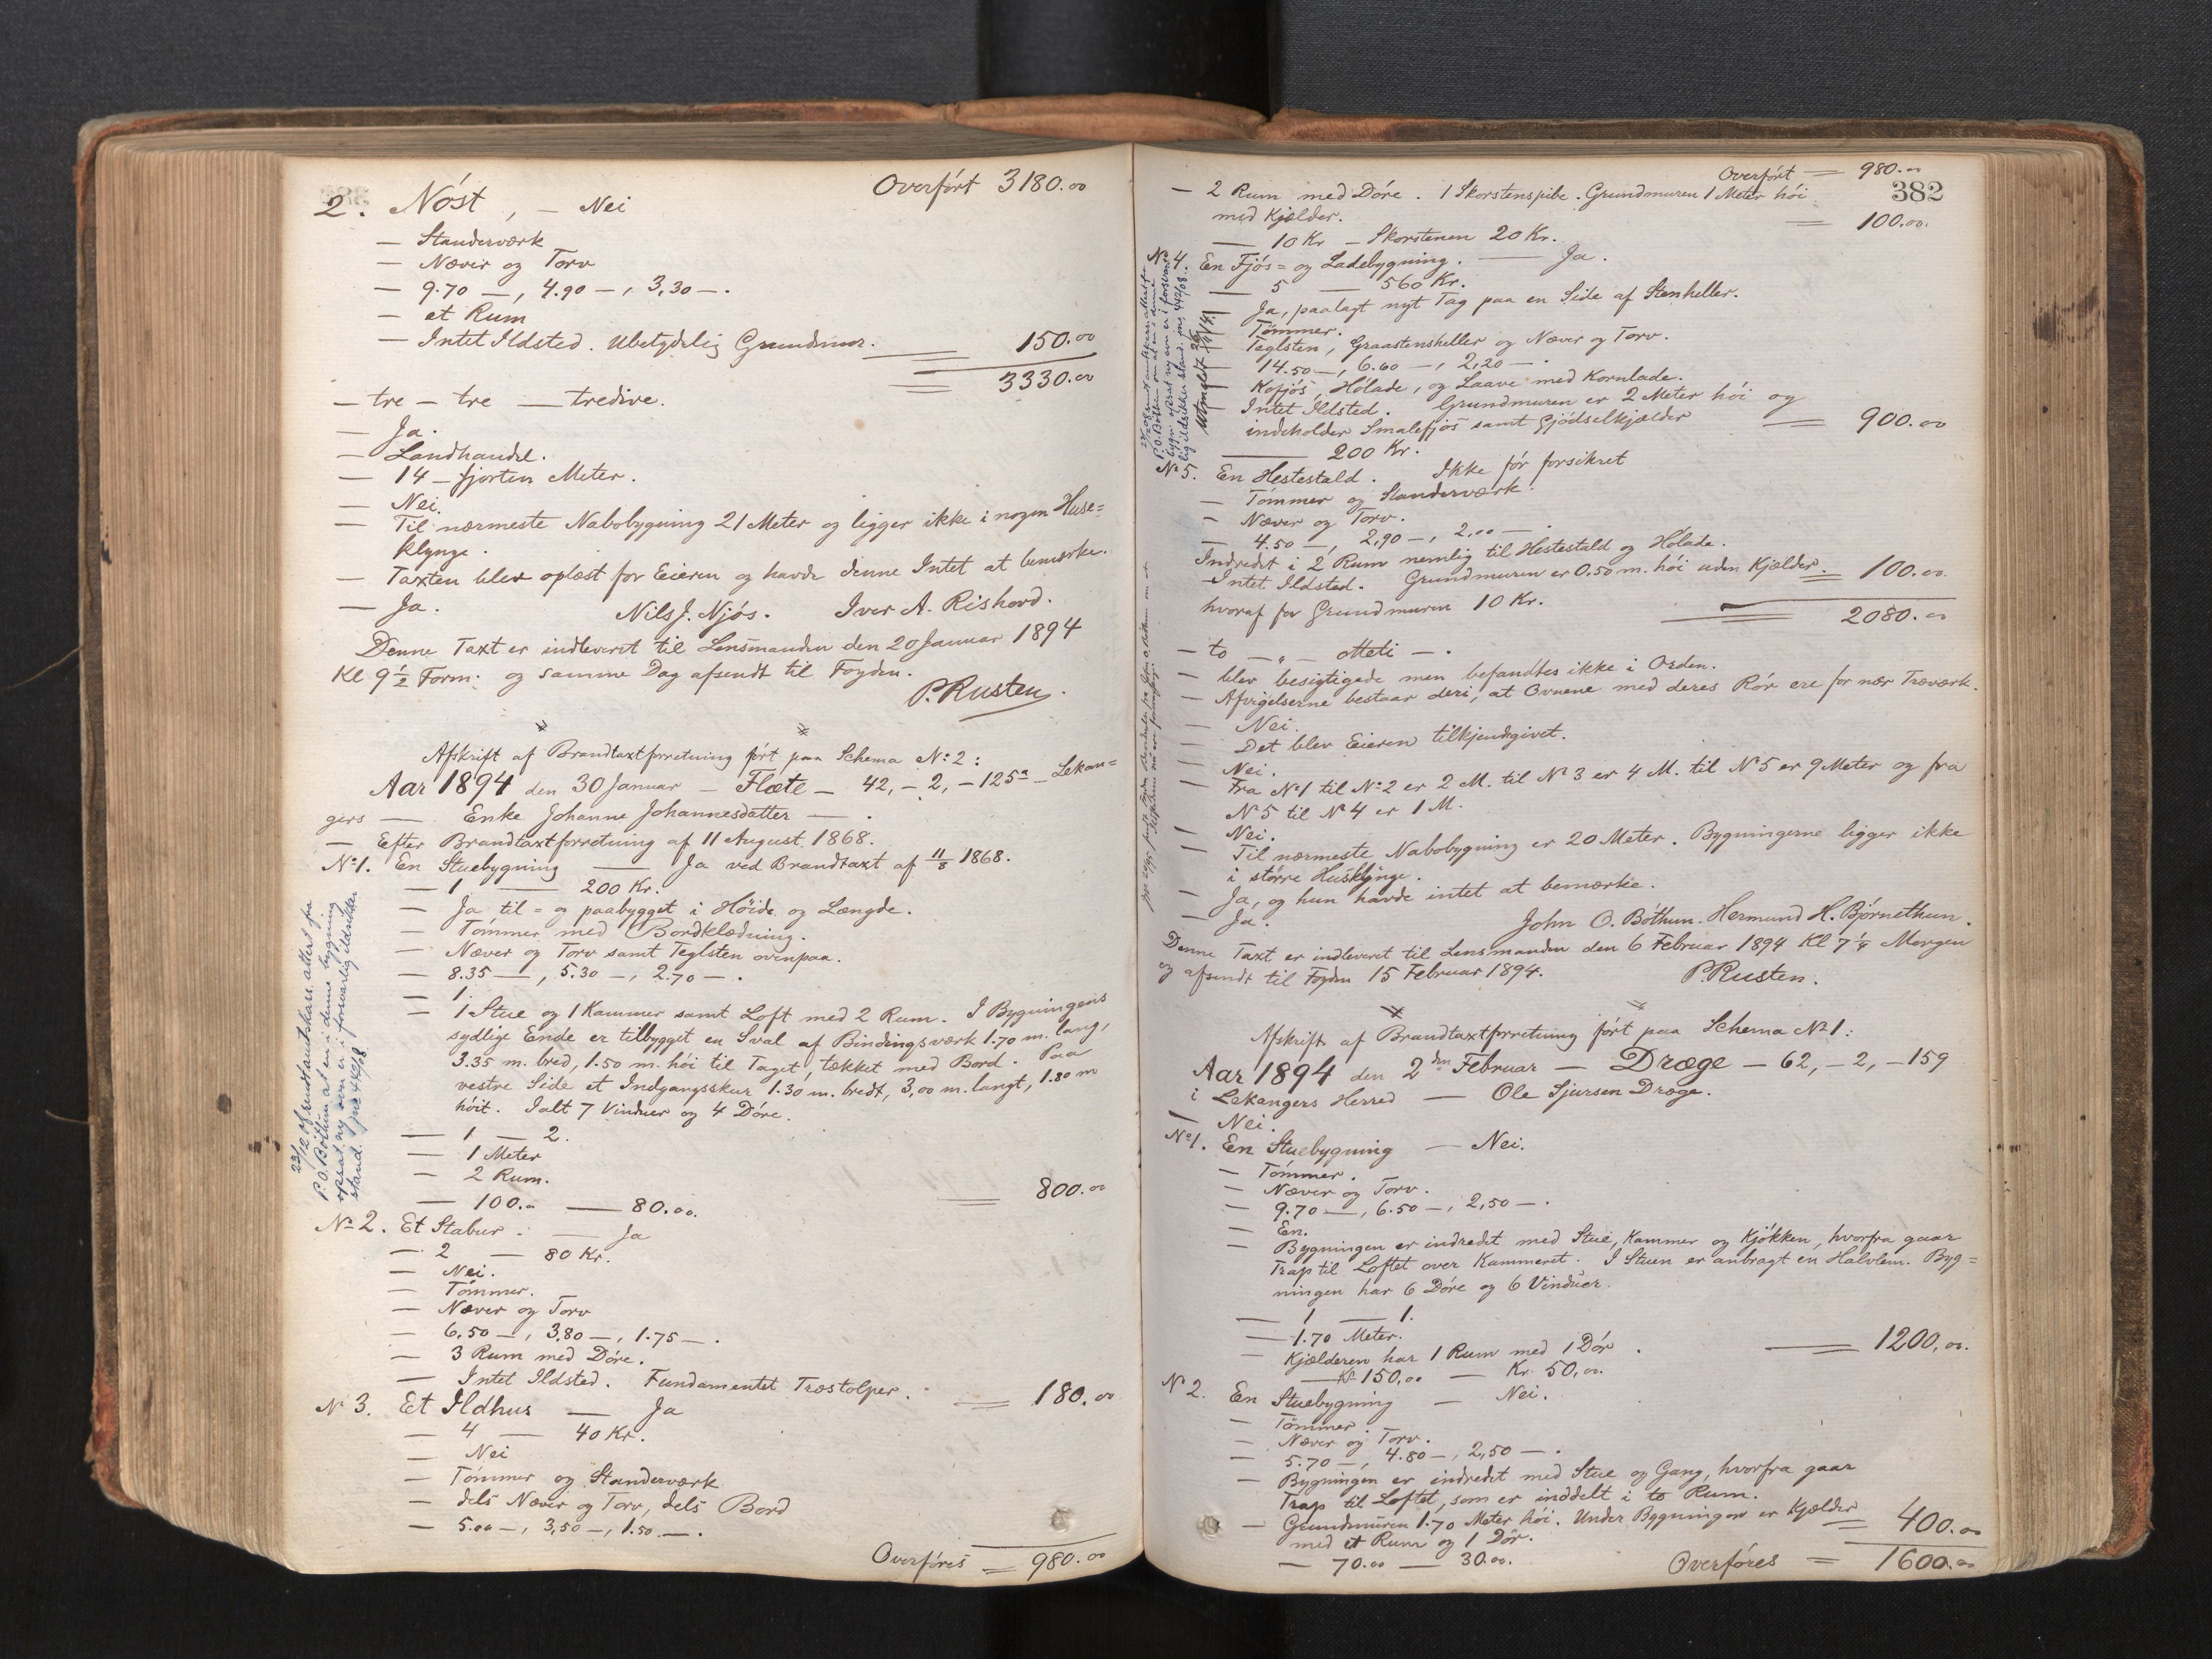 Overført 3180.00
2. Nøst, — Nei
— Standerværk
— Næver og Torv
— 9.70 —, 4.90 —, 3,30 —.
— et Rum
— Intet Ildsted. Ubetydelig Grundmur. 150.00
3330.00
— tre — tre — tredive.
— Ja.
— Landhandel.
— 14 — fjorten Meter.
— Nei.
— Til nærmeste Nabobygning 21 Meter og ligger ikke i nogen Huse=
klynge.
— Taxten blev oplæst for Eieren og havde denne Intet at bemærke.
— Ja. Nils J. Njøs. Iver A. Rishovd.
Denne Taxt er indleveret til Lensmanden den 20 Januar 1894
Kl 9 1/2 Form: og samme Dag afsendt til Fogden.
P. Rusten.
Afskrift af Brandtaxtforretning ført paa Schema No 2:
Aar 1894 den 30 Januar — Flæte — 42, — 2, — 125a — Lekan=
gers — Enke Johanne Johannesdatter — .
— Efter Brandtaxtforretning af 11 August 1868.
No 1. En Stuebygning — Ja ved Brandtaxt af 11/8 1868.
— 1 — 200 Kr.
— Ja til= og paabygget i Høide og Længde.
— Tømmer med Bordklædning.
— Næver og Torv samt Teglsten ovenpaa.
— 8.35 —, 5.30 —, 2.70 —.
— 1.
— 1 Stue og 1 Kammer samt Loft med 2 Rum. I Bygningens
sydlige Ende er tilbygget en Sval af Bindingsværk 1.70 m. lang,
3.35 m. bred, 1.50 m. høi til Taget, tækket med Bord. Paa
vestre Side et Indgangsskur 1.30 m. bredt, 3,00 m. langt, 1.80 m
høit. Ialt 7 Vinduer og 4 Døre.
— 1 — 2.
— 1 Meter
— 2 Rum.
— 100.00 — 80.00. 800.00
23/12 08 sendt amtskass. attest fra
P. O. Bøthun at en i denne bygning
opsat ny ovn er i forsvarlig ildsikker
stand. jnr 442/08.
No 2. Et Stabur. — Ja
— 2 — 80 Kr.
— Nei.
— Tømmer.
— Næver og Torv
— 6.50 —, 3.80 —, 1.75 —.
— 3 Rum med Døre.
— Intet Ildsted. Fundamentet Træstolper. 180.00
No 3. Et Ildhus — Ja
— 4 — 40 Kr.
— Nei
— Tømmer og Standerværk
— dels Næver og Torv, dels Bord
— 5.00 —, 3,50 —, 1.50 —.
Overføres = 980.00
Overført = 980.00
382
— 2 Rum med Døre. 1 Skorstenspibe. Grundmuren 1 Meter høi
med Kjælder. 100.00.
— 10 Kr — Skorstenen 20 Kr.
No 4 En Fjøs= og Ladebygning. — Ja.
— 5 — 560 Kr.
— Ja, paalagt nyt Tag paa en Side af Stenheller.
— Tømmer.
— Teglsten, Graastensheller og Næver og Torv.
— 14.50 —, 6.60 —, 2,20 —.
— Kofjøs, Hølade, og Laave med Kornlade.
— Intet Ildsted. Grundmuren er 2 Meter høi og
indeholder Smalefjøs samt Gjødselkjælder 900.00
— 200 Kr.
No 5. En Hestestald. Ikke før forsikret
— Tømmer og Standerværk.
— Næver og Torv.
— 4.50 —, 2,90 —, 2,00 —.
Indredet i 2 Rum nemlig til Hestestald og Hølade.
— Intet Ildsted. Grundmuren er 0.50 m. høi uden Kjælder. 100.00.
hvoraf for Grundmuren 10 Kr.
2080.00
— to — „ — otteti —.
— blev besigtigede men befandtes ikke i Orden.
— Afvigelserne bestaar deri, at Ovnene med deres Rør ere for nær Træværk.
— Nei.
— Det blev Eieren tilkjendegivet.
— Nei.
— Fra No 1 til No 2 er 2 M. til No 3 er 4 M. til No 5 er 9 Meter og fra
No 5 til No 4 er 1 M.
— Nei.
— Til nærmeste Nabobygning er 20 Meter. Bygningerne ligger ikke
i større Husklynge.
— Ja, og hun havde intet at bemærke.
— Ja. John O. Bøthun. Hermund H. Bjørnethun.
Denne Taxt er indleveret til Lensmanden den 6 Februar 1894 Kl 7 1/4 Morgen
og afsendt til Fogden 15 Februar 1894. P. Rusten.
Afskrift af Brandtaxtforretning ført paa Schema No 1:
Aar 1894 den 2den Februar — Dræge — 62, — 2, — 159
i Lekangers Herred — Ole Sjursen Dræge.
— Nei.
No 1. En Stuebygning — Nei.
— Tømmer.
— Næver og Torv.
— 9.70 —, 6.50 —, 2,50 —.
— En.
— Bygningen er indredet med Stue, Kammer og Kjøkken, hvorfra gaar
Trap til Loftet over Kammeret. I Stuen er anbragt en Halvlem. Byg=
ningen har 6 Døre og 6 Vinduer.
— 1 — 1.
— 1.70 Meter.
— Kjælderen har 1 Rum med 1 Dør. 1200,00.
— Kr 150,00 — Kr. 50,00.
No 2. En Stuebygning — Nei.
— Tømmer.
— Næver og Torv.
— 5.70 —, 4.80 —, 2,50 —.
— Bygningen er indredet med Stue og Gang, hvorfra gaar
Trap til Loftet, som er inddelt i to Rum.
— Grundmuren 1.70 Meter høi. Under Bygningen er Kjælder
med et Rum og 1 Dør. 400.00
— 70.00 — 30.00.
Overføres = 1600.00